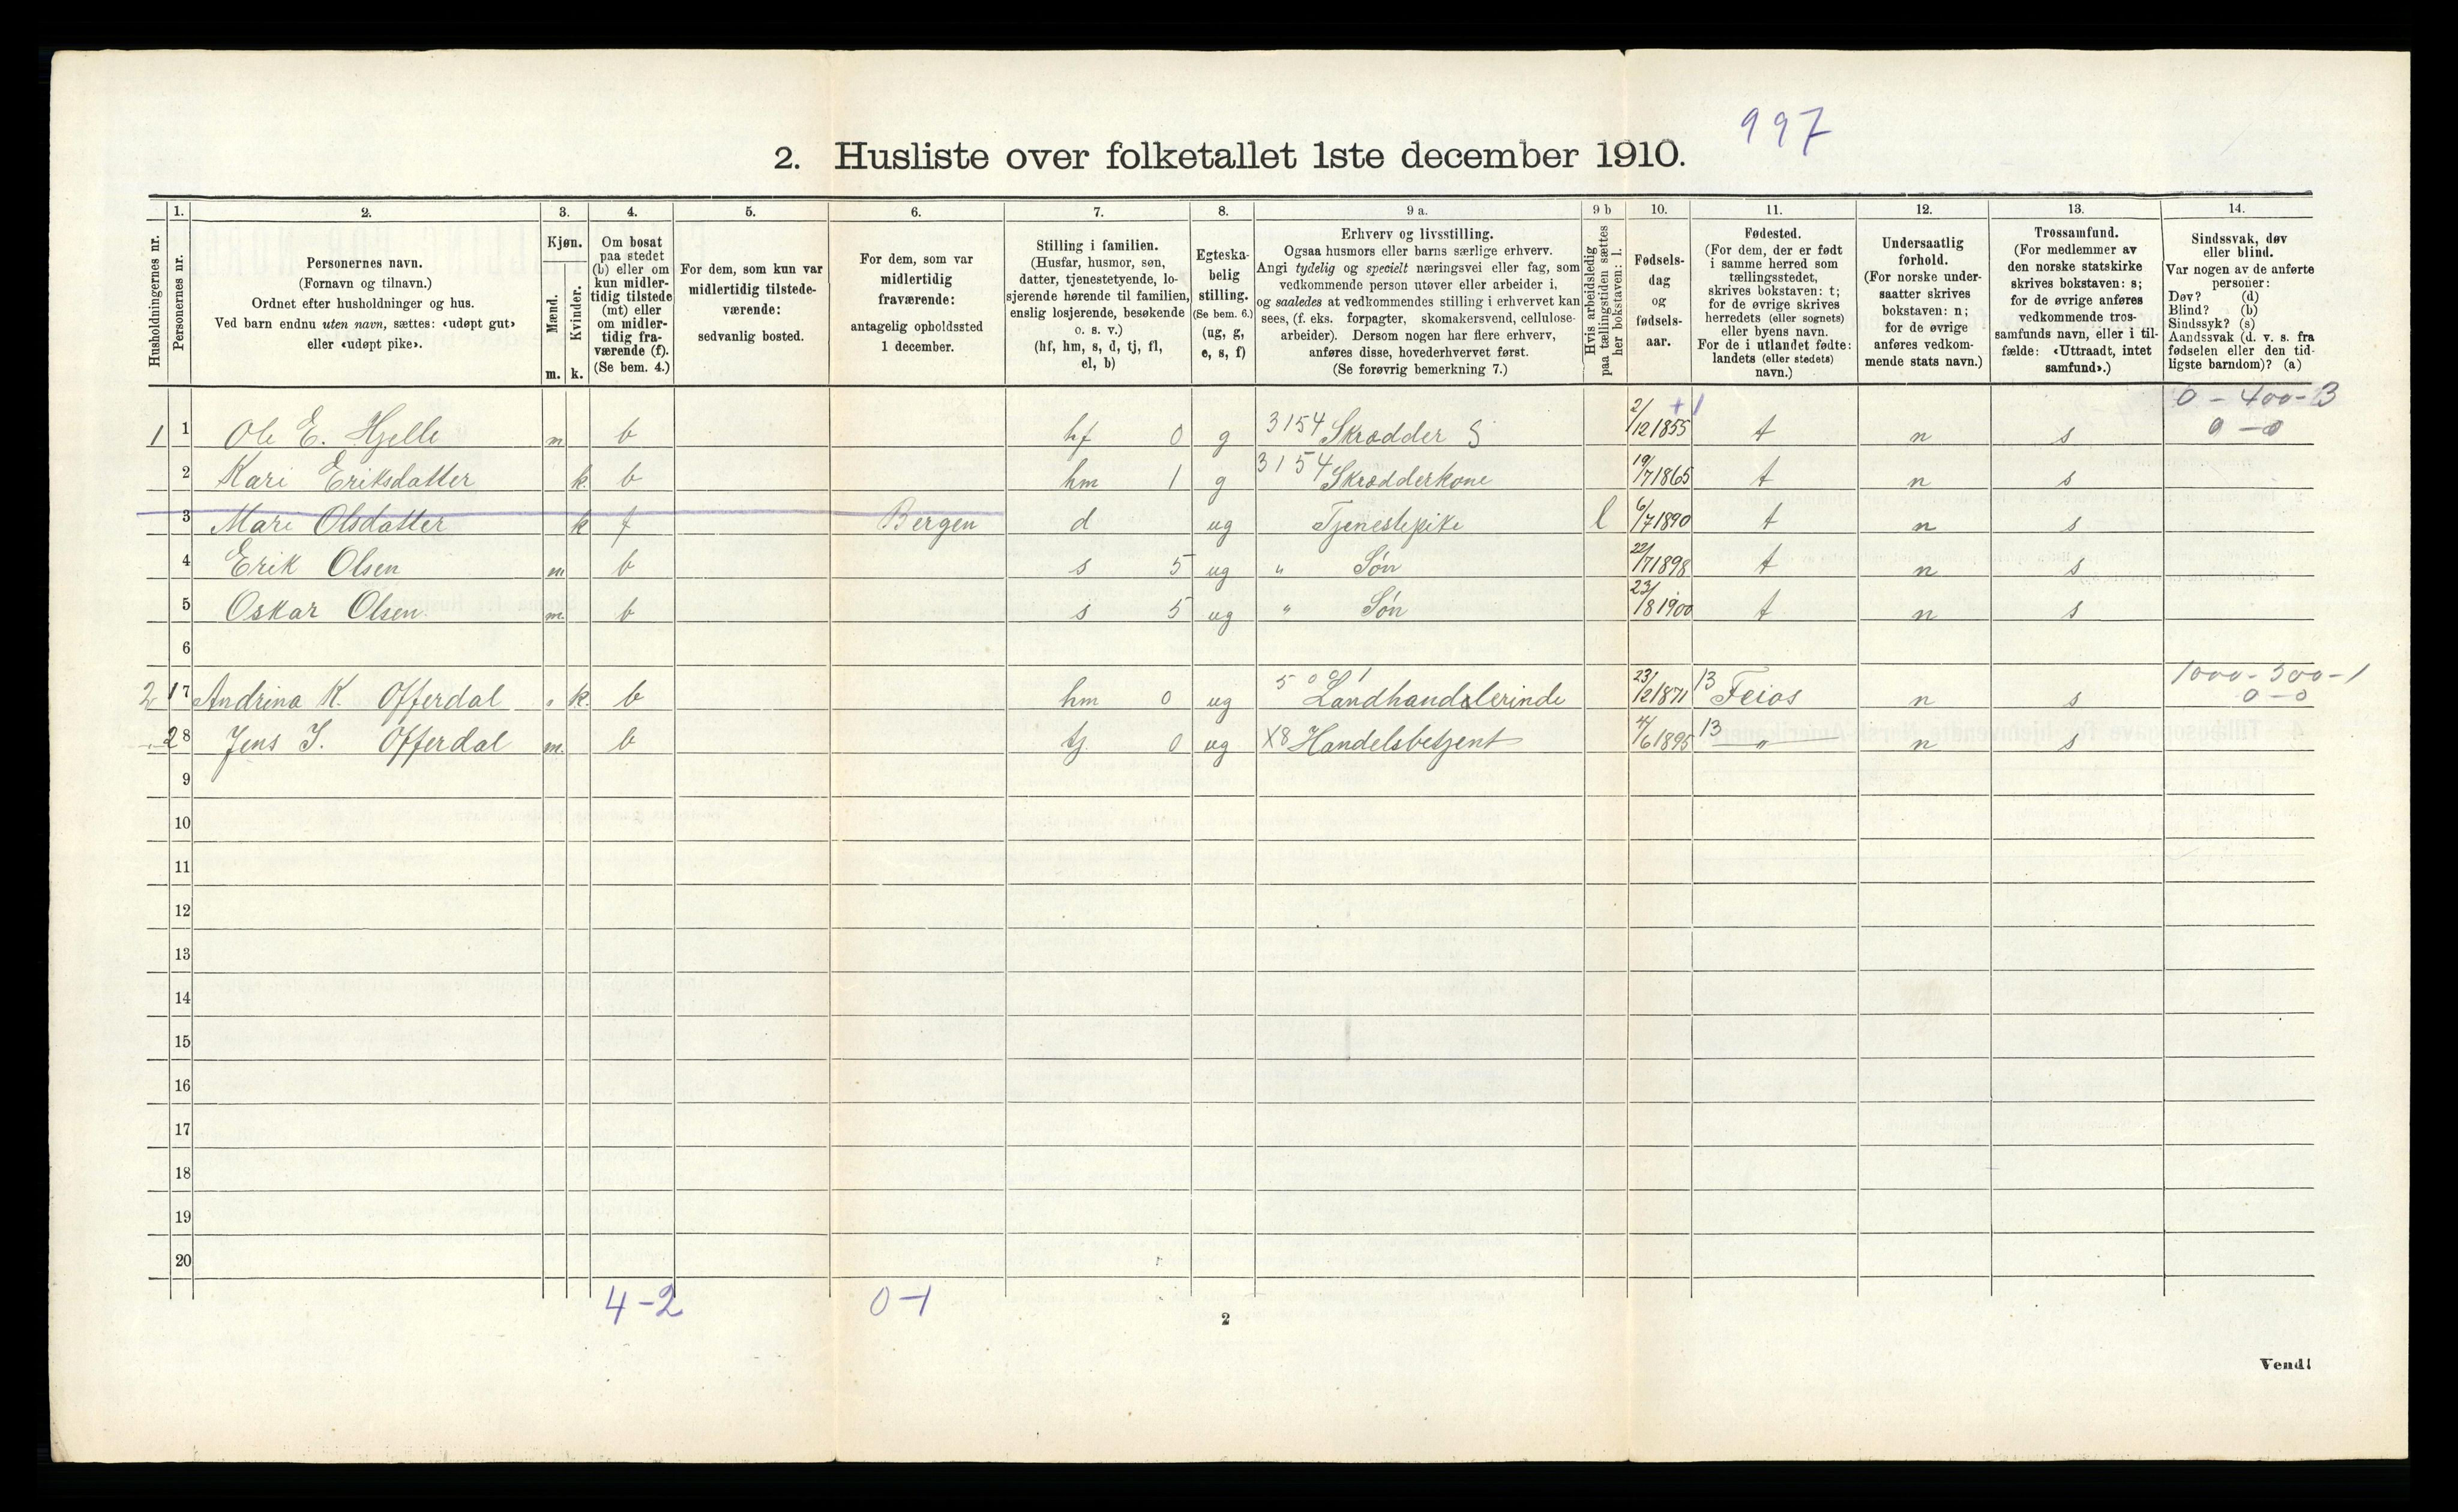 997
2. Husliste over folketallet 1ste december 1910.
Husholdningernes nr.
1.
Personernes nr.
2.
Personernes navn.
(Fornavn og tilnavn.)
Ordnet efter husholdninger og hus.
Ved barn endnu uten navn, sættes: «udøpt gut»
eller «udøpt pike».
3.
Kjøn.
Mænd.
Kvinder.
m. k.
4.
Om bosat
paa stedet
(b) eller om
kun midler-
tidig tilstede
(mt) eller
om midler-
tidig fra-
værende (f).
(Se bem. 4.)
5.
For dem, som kun var
midlertidig tilstede-
værende:
sedvanlig bosted.
6.
For dem, som var
midlertidig
fraværende:
antagelig opholdssted
1 december.
7.
Stilling i familien.
(Husfar, husmor, søn,
datter, tjenestetyende, lo-
sjerende hørende til familien,
enslig losjerende, besøkende
o. s. v.)
(hf, hm, s, d, tj, fl,
el, b)
8.
Egteska-
belig
stilling.
(Se bem. 6.)
(ug, g,
e, s, f)
9 a.
Erhverv og livsstilling.
Ogsaa husmors eller barns særlige erhverv.
Angi tydelig og specielt næringsvei eller fag, som
vedkommende person utøver eller arbeider i,
og saaledes at vedkommendes stilling i erhvervet kan
sees, (f. eks. forpagter, skomakersvend, cellulose-
arbeider). Dersom nogen har flere erhverv,
anføres disse, hovederhvervet først.
(Se forøvrig bemerkning 7.)
9 b
Hvis arbeidsledig
paa tællingstiden sættes
her bokstaven: l.
10.
Fødsels-
dag
og
fødsels-
aar.
11.
Fødested.
(For dem, der er født
i samme herred som
tællingsstedet,
skrives bokstaven: t;
for de øvrige skrives
herredets (eller sognets)
eller byens navn.
For de i utlandet fødte:
landets (eller stedets)
navn.)
12.
Undersaatlig
forhold.
(For norske under-
saatter skrives
bokstaven: n;
for de øvrige
anføres vedkom-
mende stats navn.)
13.
Trossamfund.
(For medlemmer av
den norske statskirke
skrives bokstaven: s;
for de øvrige anføres
vedkommende tros-
samfunds navn, eller i til-
fælde: «Uttraadt, intet
samfund».)
14.
Sindssvak, døv
eller blind.
Var nogen av de anførte
personer:
Døv? (d)
Blind? (b)
Sindssyk? (s)
Aandssvak (d. v. s. fra
fødselen eller den tid-
ligste barndom)? (a)
0 - 400 - 3
1 1 Ole E. Hjelle m b hf 0 g 3154 Skrædder S 2/12 1855 t n s 0 - 0
2 Kari Eriksdatter k. b hm 1 g 3154 Skrædderkone 19/7 1865 t n s
3 Mari Olsdatter k f Bergen d ug Tjenestepike l 6/7 1890 t n s
4 Erik Olsen m b s 5 ug " Søn 22/7 1898 t n s
5 Oskar Olsen. m. b s 5 ug " Søn 23/8 1900 t n s
6
1000 - 500 - 1
2 1 7 Andrina K. Offerdal k. b hm 0 ug Landhandlerinde 23/12 1871 13 Feios n s 0 - 0
2 8 Jens S. Offerdal m. b tj. 0 ug X8 Handelsbetjent 4/6 1895 13 " n s
9
10
11
12
13
14
15
16
17
18
19
20
4 - 2 0 - 1
2
Vend!